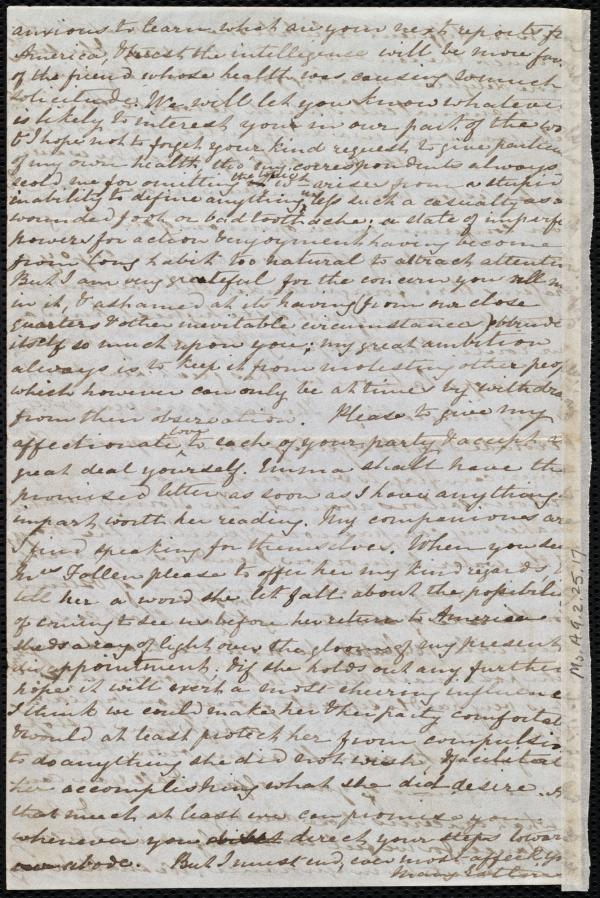 anxious to learn what are your next reports fr
America, & trust the intelligence will be more fav
of the friend whose health was causing so much
solicitude. We will let you know whatever
is likely to interest you in our part of the wo
& I hope not to forget your kind request to give particu
of my own health, tho' my correspondents always
scold me for omitting it arises from a stupid
inability to define anything less such a casualty as a
wounded foot or bad tooth ache; a state of imperfe
powers for action & enjoyment having become
from long habit too natural to attract attention
But I am very grateful for the concern you
in it, & ashamed at its having from our close
quarters & other inevitable circumstance obtrude
itself so much upon you; my great ambition
always is to keep it from molesting other peop
which however can only be at times by withdra
from their observation. Please to give my
affectionate love to each of your party & accept a
great deal yourself. Emma shall have the
promised letter as soon as I have anything
impart worth her reading. My companions are
I find speaking for themselves. When you see
Mrs Follen please to offer her my kind regards,
tell her a word she let fall about the possibili
of coming to see us before her return to America
sheds a ray of light over the gloom of my present
disappointment; & if she holds out any further
hope it will exert a most cheering influence
I think we could make her & her party comfortab
& would at least protect her from compulsio
to do anything she did not wish, & facilitat
her accomplishing what she did desire.
that much at least we can promise you
whenever you direct your steps towar
our abode. But I must end, ever most affectly yr
Mary Estlin
Ms.A.9.2.25.17